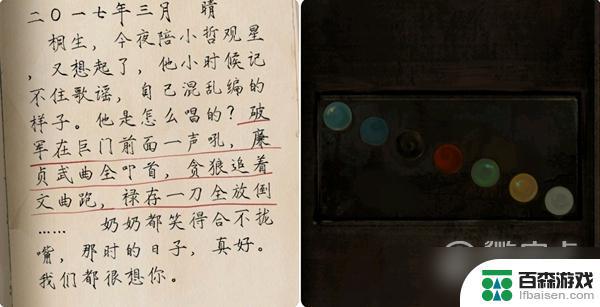 二〇一七年三月 晴
桐生，今夜陪小哲观星
，又想起了，他小时候记
不住歌谣，自己混乱编的
样子。他是怎么唱的？破
军在巨门前面一声吼，廉
贞武曲全叩首，贪狼追着
文曲跑，禄存一刀全放倒
…… 奶奶都笑得合不拢
嘴，那时的日子，真好。
我们都很想你。
百森游戏
lfbaisen.com